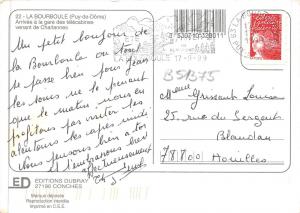 22 - LA BOURBOULE (Puy-de-Dôme)
Arrivée à la gare des télécabines
venant de Charlannes
Un petit bonjour de
la Bourboule où tout
se passe bien pour Jean
les soins ne le prennent
que le matin nous en
profitons pas visiter les
alentours les après midi
Nous pensons bien à toi
et t'embrassons bien
ED
EDITIONS DUBRAY
27190 CONCHES
Marque déposée
Reproduction interdite
Imprimé en C.E.E.
LA BOURBOULE 17-9-99
BSB75
Madame Grisant Louise
25, rue du Sergent
Blandan
78800 Houilles